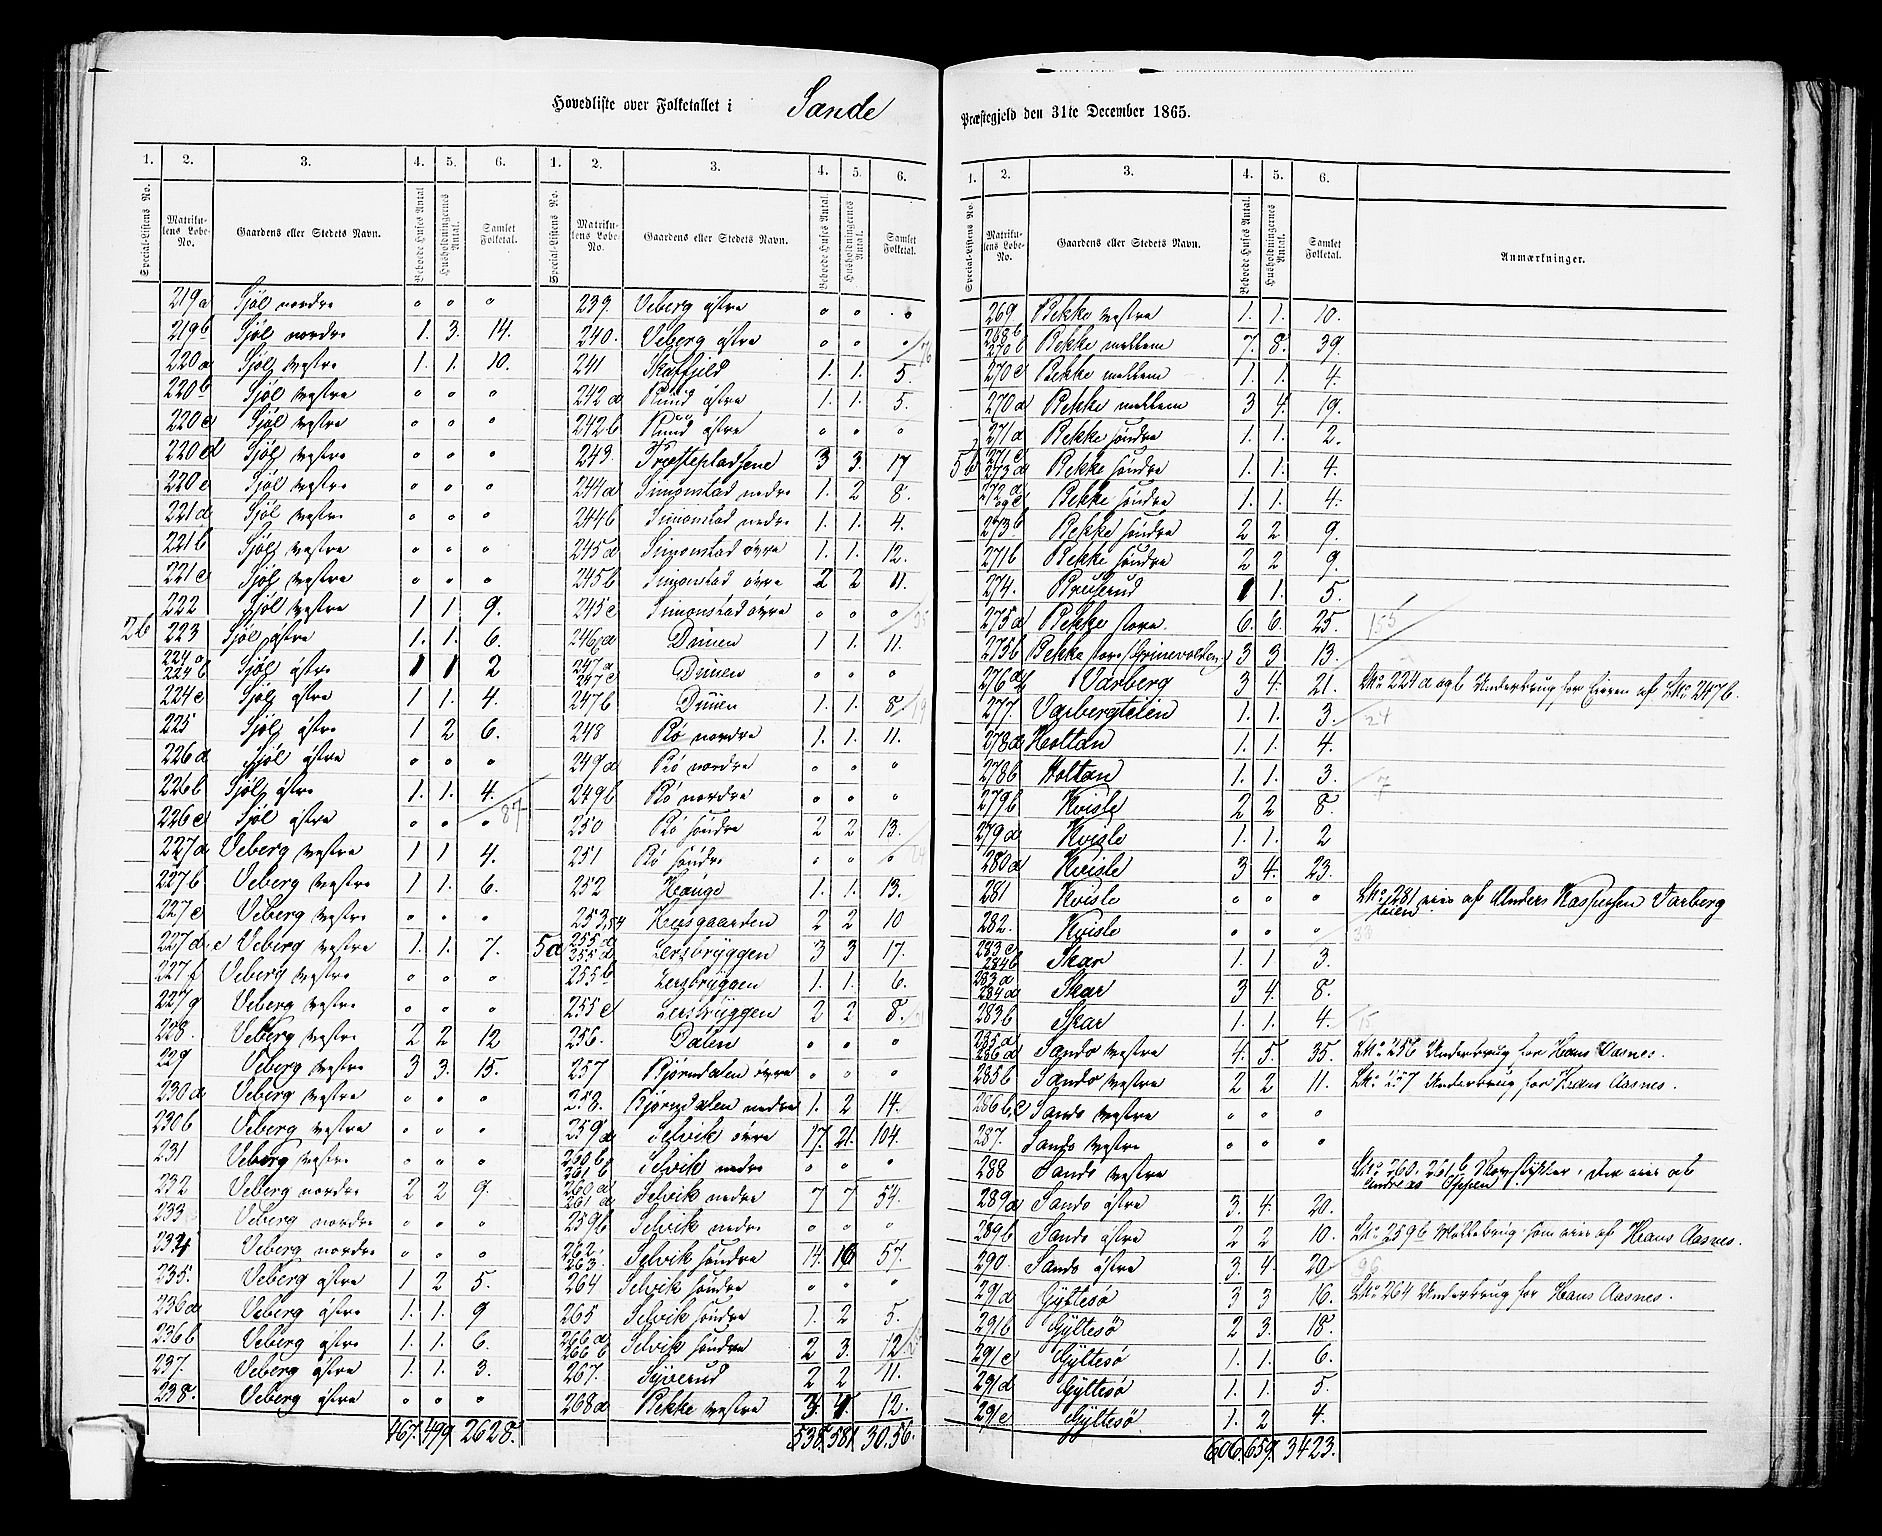 Hovedliste over Folketallet i Sande Præstegjeld den 31te December 1865.
1. 2. 3. 4. 5. 6.
Special-Listens No. Matrikulens Løbe-No. Gaardens eller Stedets Navn. Beboede Huses Antal. Husholdningernes Antal. Samlet Folketal.
219a Sjøl nordre 0 0 0
219b Sjøl nordre 1. 3. 14.
220a Sjøl vestre 1. 1. 10.
220b Sjøl vestre 0 0 0
220c Sjøl vestre 0 0 0
220d Sjøl vestre 0 0 0
220e Sjøl vestre 0 0 0
221a Sjøl vestre 0 0 0
221b Sjøl vestre 0 0 0
221c Sjøl vestre 0 0 0
222 Sjøl vestre 1 1 9.
26 223 Sjøl østre 1. 1. 6.
224a 224b Sjøl østre 1 1 2
224c Sjøl østre 1 1. 4.
225 Sjøl østre 1 2 6.
226a Sjøl østre 0 0 0
226b Sjøl østre 1. 1. 4.
226c Sjøl østre 0 0 0 87
227a Veberg vestre 1 1 4.
227b Veberg vestre 1 1. 6.
227c Veberg vestre 0 0 0
227d, e Veberg vestre 1. 1. 7.
227f Veberg vestre 0 0 0
227g Veberg vestre 0 0 0
228. Veberg vestre 2 2 12
229 Veberg vestre 3 3. 15.
230a Veberg vestre 0 0 0
230b Veberg vestre 0 0 0
231 Veberg vestre 0 0 0
232 Veberg nordre 2 2 9.
233 Veberg nordre 0 0 0
234 Veberg nordre 0 0 0
235. Veberg østre 1 2 5.
236a Veberg østre 1. 1. 9
236b Veberg østre 1. 1. 6.
237. Veberg østre 1. 1. 3.
238. Veberg østre 0 0 0
467. 499 2628.
1. 2. 3. 4. 5. 6.
Special-Listens No. Matrikulens Løbe-No. Gaardens eller Stedets Navn. Beboede Huses Antal. Husholdningernes Antal. Samlet Folketal.
239. Veberg østre 0 0 0
240. Veberg østre 0 0 0 76
241 Skafjeld 1. 1. 5.
242a Ruud østre 1. 1. 5.
242b Ruud østre 0 0 0
243. Præstepladsene 3 3. 17
244a Simonstad nedre 1. 2 8.
244b Simonstad nedre 1 1. 4.
245a Simonstad øvre 1. 1. 12.
245b Simonstad øvre 2 2 11.
245c Simonstad øvre 0 0 0
246a Duuen 1 1. 11.
247a 247c Duuen 0 0 0
247b Duuen 1. 1. 8 19
248 Rø nordre 1. 1. 11.
249a Rø nordre 0 0 0
249b Rø nordre 0 0 0
250 Rø søndre 2 2 13.
251 Rø søndre 0 0 0 24
252 Hauge 1. 1. 13.
253, 54 Husgaarden 2 2 10
5a 255a 255d Lersbryggen 3 3 17.
255b Lersbryggen 1. 1. 6.
255c Lersbryggen 2 2 8.
256. Dalen 0 0 0
257 Bjørndalen øvre 0 0 0
258. Bjørndalen nedre 1. 2 14.
259a Selvik øvre 17. 21. 104.
260b 261b Selvik nedre 0 0 0
260a 261a Selvik nedre 7 7 54.
259b Selvik nedre 0 0 0
262. 263. Selvik søndre 14. 16 57.
264 Selvik søndre 0 0 0
265 Selvik søndre 1. 2 5.
266a 266b Selvik søndre 2 3. 12
267. Syverud 2 2 11.
268a Bekke vestre 3. 4 12.
538. 581. 3056.
1. 2. 3. 4. 5. 6.
Special-Listens No. Matrikulens Løbe-No. Gaardens eller Stedets Navn. Beboede Huses Antal. Husholdningernes Antal. Samlet Folketal. Anmærkninger.
269. Bekke vestre 1. 1. 10.
268b 270b Bekke mellem 7. 8. 39.
270c Bekke mellem 1. 1. 4.
270a Bekke mellem 3 4. 19.
271a Bekke søndre 1. 1. 2.
5b 271c 273a Bekke søndre 1. 1. 4.
272a og c Bekke søndre 1. 1. 4
273b Bekke søndre 2 2 9.
271b Bekke søndre 2 2 9.
274. Bruserud 1 1. 5.
275a Bekke store. 6. 6 25. 155
275b Bekke store (Grinevolden) 3 3 13.
276a Varberg 3 4. 21. L.No 224a og b Underbrug for Eieren af L.No 247b.
277. Varbergteien 1. 1. 3. 24
278a Holtan 1. 1. 4.
278b Holtan 1. 1. 3. 7
279b Kvisle 2 2 8.
279a Kvisle 1. 1. 2
280a Kvisle 3 4. 23.
281 Kvisle 0 0 0 L.No 281 eies af Anders Kaspersen Varberg teien
282. Kvisle 0 0 0 33
283c 284b Skar 1. 1 3.
283a 284a Skar 3 4. 8.
283b Skar 1. 1. 4. 15
285a 286a Sando vestre 4. 5. 35. L.No 256 Underbrug for Hans Aasnes.
285b Sando vestre 2 2 11. L.No 257 Underbrug for Hans Aasnes.
286b,c Sando vestre 0 0 0
287. Sando vestre 0 0 0
288 Sando vestre L.No 260. 261b Hovstykker, der eies af Andreas Oppen.
289a Sando østre 3. 4. 20.
289b Sando østre 2 2 10. L.No 259b Møllebrug som eies af Hans Aasnes.
290. Sando østre 3. 4. 20 96
291a Gyltesø 3 3. 16. L.No 264 Underbrug for Hans Aasnes.
291b Gyltesø 2 3. 18.
291c Gyltesø 1. 1. 6.
291d Gyltesø 1. 1. 5.
291e Gyltesø 1. 2 4.
606. 659. 3423.